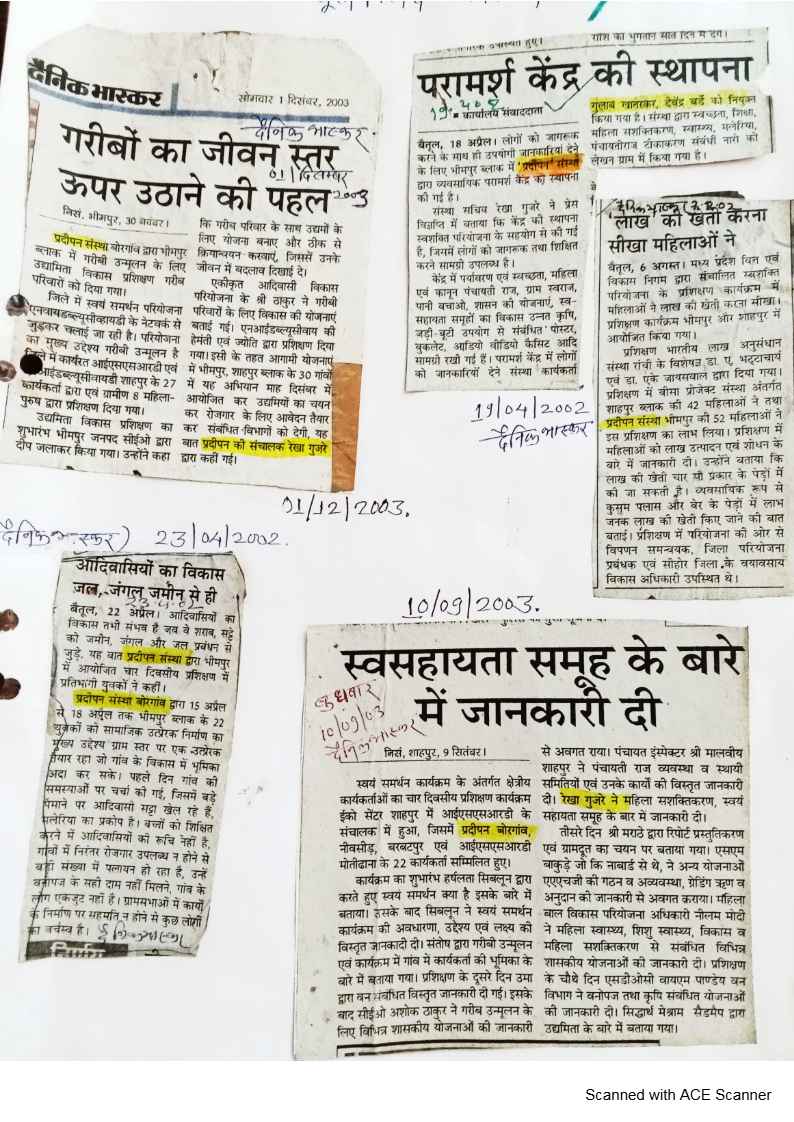 दैनिक भास्कर
सोमवार 1 दिसंबर, 2003
दैनिक भास्कर
01/दिसम्बर
2003
गरीबों का जीवन स्तर
ऊपर उठाने की पहल
निसं. भीमपुर, 30 नवंबर।
प्रदीपन संस्था बोरगांव द्वारा भीमपुर
ब्लाक में गरीबी उन्मूलन के लिए
उद्यमिता विकास प्रशिक्षण गरीब
परिवारों को दिया गया।
जिले में स्वयं समर्थन परियोजना
एनवायडब्ल्यूसीव्हायडी के नेटवर्क से
जुड़कर चलाई जा रही है। परियोजना
का मुख्य उद्देश्य गरीबी उन्मूलन है
जिले में कार्यरत आईएसएसआरडी एवं
आईडब्ल्यूसीवायडी शाहपुर के 27
कार्यकर्ता द्वारा एवं ग्रामीण 8 महिला-
पुरुष द्वारा प्रशिक्षण दिया गया।
उद्यमिता विकास प्रशिक्षण का
शुभारंभ भीमपुर जनपद सीईओ द्वारा
दीप जलाकर किया गया। उन्होंने कहा
कि गरीब परिवार के साथ उद्यमों के
लिए योजना बनाए और ठीक से
क्रियान्वयन करवाएं, जिससें उनके
जीवन में बदलाव दिखाई दे।
एकीकृत आदिवासी विकास
परियोजना के श्री ठाकुर ने गरीबी
परिवारों के लिए विकास की योजनाएं
बताई गई। एनआईडब्ल्यूसीवाय की
हेमंती एवं ज्योति द्वारा प्रशिक्षण दिया
गया। इसी के तहत आगामी योजनाएं
में भीमपुर, शाहपुर ब्लाक के 30 गांवों
में यह अभियान माह दिसंबर में
आयोजित कर उद्यमियों का चयन
कर रोजगार के लिए आवेदन तैयार
कर संबंधित विभागों को देगी, यह
बात प्रदीपन की संचालक रेखा गुजरे
द्वारा कही गई।
01/12/2003.
उपस्थित हुए।
राशि का भुगतान सात दिन में देंगे।
परामर्श केंद्र की स्थापना
कार्यालय संवाददाता
बैतूल, 18 अप्रैल। लोगों को जागरूक
करने के साथ ही उपयोगी जानकारियां देने
के लिए भीमपुर ब्लाक में 'प्रदीपन' संस्था
द्वारा व्यवसायिक परामर्श केंद्र की स्थापना
की गई है।
संस्था सचिव रेखा गुजरे ने प्रेस
विज्ञप्ति में बताया कि केंद्र की स्थापना
स्वशक्ति परियोजना के सहयोग से की गई
है, जिसमें लोगों को जागरूक तथा शिक्षित
करने सामग्री उपलब्ध है।
केंद्र में पर्यावरण एवं स्वच्छता, महिला
एवं कानून पंचायती राज, ग्राम स्वराज,
पानी बचाओ, शासन की योजनाएं, स्व-
सहायता समूहों का विकास उन्नत कृषि,
जड़ी-बूटी उपयोग से संबंधित पोस्टर,
बुकलेट, आडियो वीडियो कैसिट आदि
सामग्री रखी गई हैं। परामर्श केंद्र में लोगों
को जानकारियां देने संस्था कार्यकर्ता
गुलाब खानरकर, देवेंद्र बर्डे को नियुक्त
किया गया है। संस्था द्वारा स्वच्छता, शिक्षा,
महिला सशक्तिकरण, स्वास्थ्य, मलेरिया,
पंचायतीराज टीकाकरण संबंधी नारों को
लेखन ग्राम में किया गया है।
19/04/2002
दैनिक भास्कर
लाख की खेती करना
सीखा महिलाओं ने
बैतूल, 6 अगस्त। मध्य प्रदेश वित्त एवं
विकास निगम द्वारा संचालित स्वशक्ति
परियोजना के प्रशिक्षण कार्यक्रम में
महिलाओं ने लाख की खेती करना सीखा।
प्रशिक्षण कार्यक्रम भीमपुर और शाहपुर में
आयोजित किया गया।
प्रशिक्षण भारतीय लाख अनुसंधान
संस्था रांची के विशेषज्ञ डा. ए. भट्टाचार्य
एवं डा. एके जायसवाल द्वारा दिया गया।
प्रशिक्षण में बीसा प्रोजेक्ट संस्था अंतर्गत
शाहपुर ब्लाक की 42 महिलाओं ने तथा
प्रदीपन संस्था भीमपुर की 52 महिलाओं ने
इस प्रशिक्षण का लाभ लिया। प्रशिक्षण में
महिलाओं को लाख उत्पादन एवं शोधन के
बारे में जानकारी दी। उन्होंने बताया कि
लाख की खेती चार सौ प्रकार के पेड़ों में
की जा सकती है। व्यवसायिक रूप से
कुसुम पलास और बेर के पेड़ों में लाभ
जनक लाख की खेती किए जाने की बात
बताई। प्रशिक्षण में परियोजना की ओर से
विपणन समन्वयक, जिला परियोजना
प्रबंधक एवं सीहोर जिला के वयावसाय
विकास अधिकारी उपस्थित थे।
दैनिक भास्कर) 23/04/2002.
आदिवासियों का विकास
जल, जंगल जमीन से ही
बैतूल, 22 अप्रैल। आदिवासियों का
विकास तभी संभव है जब वे शराब, सट्टे
को जमीन, जंगल और जल प्रबंधन से
जुड़े, यह बात प्रदीपन संस्था द्वारा भीमपुर
में आयोजित चार दिवसीय प्रशिक्षण में
प्रतिभागी युवकों ने कही।
प्रदीपन संस्था बोरगांव द्वारा 15 अप्रैल
से 18 अप्रैल तक भीमपुर ब्लाक के 22
युवकों को सामाजिक उत्प्रेरक निर्माण का
मुख्य उद्देश्य ग्राम स्तर पर एक उत्प्रेरक
तैयार रहा जो गांव के विकास में भूमिका
अदा कर सके। पहले दिन गांव की
समस्याओं पर चर्चा की गई, जिसमें बड़े
पैमाने पर आदिवासी सट्टा खेल रहे हैं,
मलेरिया का प्रकोप है। बच्चों को शिक्षित
करने में आदिवासियों को रूचि नहीं है,
गांवों में निरंतर रोजगार उपलब्ध न होने से
बड़ी संख्या में पलायन हो रहा है, उन्हें
वनोपज के सही दाम नहीं मिलने, गांव के
लोग एकजुट नहीं है। ग्रामसभाओं में कार्यों
के निर्माण पर सहमति न होने से कुछ लोगों
का वर्चस्व है। दैनिक भास्कर
10/09/2003.
स्वसहायता समूह के बारे
में जानकारी दी
बुधवार
10/09/03
दैनिक भास्कर
निसं, शाहपुर, 9 सितंबर।
स्वयं समर्थन कार्यक्रम के अंतर्गत क्षेत्रीय
कार्यकर्ताओं का चार दिवसीय प्रशिक्षण कार्यक्रम
इंको सेंटर शाहपुर में आईएसएसआरडी के
संचालक में हुआ, जिसमें प्रदीपन बोरगांव,
नीवसीड, बरबटपुर एवं आईएसएसआरडी
मोतीढाना के 22 कार्यकर्ता सम्मिलित हुए।
कार्यक्रम का शुभारंभ हर्षलता सिबलून द्वारा
करते हुए स्वयं समर्थन क्या है इसके बारे में
बताया। इसके बाद सिबलून ने स्वयं समर्थन
कार्यक्रम की अवधारणा, उद्देश्य एवं लक्ष्य की
विस्तृत जानकादी दी। संतोष द्वारा गरीबी उन्मूलन
एवं कार्यक्रम में गांव में कार्यकर्ता की भूमिका के
बारे में बताया गया। प्रशिक्षण के दूसरे दिन उमा
द्वारा वन संबंधित विस्तृत जानकारी दी गई। इसके
बाद सीईओ अशोक ठाकुर ने गरीब उन्मूलन के
लिए विभिन्न शासकीय योजनाओं की जानकारी
से अवगत राया। पंचायत इंस्पेक्टर श्री मालवीय
शाहपुर ने पंचायती राज व्यवस्था व स्थायी
समितियों एवं उनके कार्यों की विस्तृत जानकारी
दी। रेखा गुजरे ने महिला सशक्तिकरण, स्वयं
सहायता समूह के बार में जानकारी दी।
तीसरे दिन श्री मराठे द्वारा रिपोर्ट प्रस्तुतिकरण
एवं ग्रामदूत का चयन पर बताया गया। एसएम
बाकुड़े जो कि नाबार्ड से थे, ने अन्य योजनाओं
एएएचजी की गठन व अव्यवस्था, ग्रेडिंग ऋण व
अनुदान की जानकारी से अवगत कराया। महिला
बाल विकास परियोजना अधिकारी नीलम मोदी
ने महिला स्वास्थ्य, शिशु स्वास्थ्य, विकास व
महिला सशक्तिकरण से संबंधित विभिन्न
शासकीय योजनाओं की जानकारी दी। प्रशिक्षण
के चौथे दिन एसडीओसी वायएम पाण्डेय वन
विभाग ने वनोपज तथा कृषि संबंधित योजनाओं
की जानकारी दी। सिद्धार्थ मेश्राम सैडमैप द्वारा
उद्यमिता के बारे में बताया गया।
Scanned with ACE Scanner